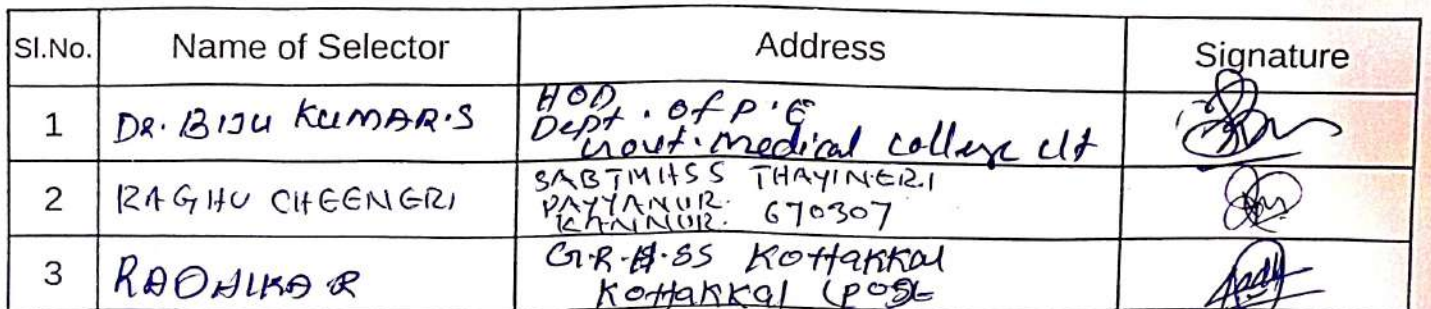 Sl.No. Name of Selector Address Signature
1 DR. BIJU KUMAR.S HOD,
Dept. of P.E
Govt. medical college clt
2 RAGHU CHEENERI SABTMHSS THAYINERI
PAYYANUR.
KANNUR. 670307
3 RADHIKA R G.R.H.SS Kottakkal
Kottakkal (post